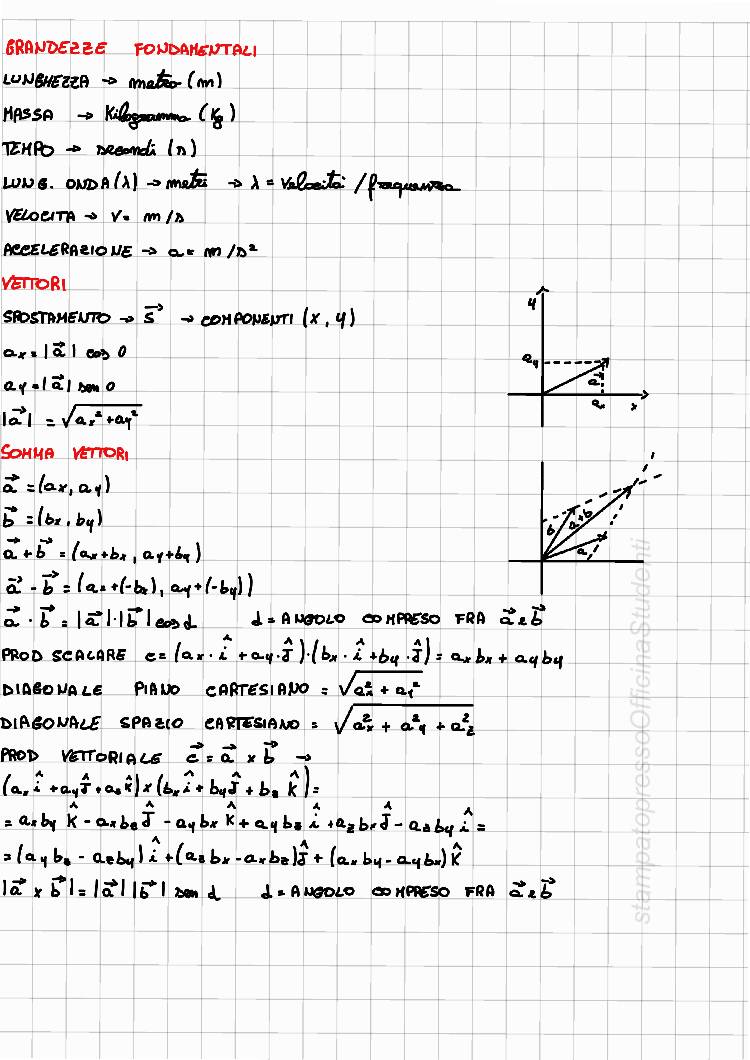 GRANDEZZE FONDAMENTALI
LUNGHEZZA → metro (m)
MASSA → Kilogrammo (Kg)
TEMPO → secondi (s)
LUNG. ONDA (λ) → metri → λ = Velocità / frequenza
VELOCITA → V = m/s
ACCELERAZIONE → a = m/s²
VETTORI
SPOSTAMENTO → s⃗ → COMPONENTI (x, y)
ax = |a⃗| cos θ
ay = |a⃗| sen θ
|a⃗| = √(ax² + ay²)
y
ay
a⃗
ax
x
SOMMA VETTORI
a⃗ = (ax, ay)
b⃗ = (bx, by)
a⃗ + b⃗ = (ax+bx, ay+by)
a⃗ - b⃗ = (ax+(-bx), ay+(-by))
b
a+b
a
a⃗ · b⃗ = |a⃗|·|b⃗| cos d d = ANGOLO COMPRESO FRA a⃗ e b⃗
PROD SCALARE c = (ax · î + ay · Ĵ)·(bx · î + by · Ĵ) = ax bx + ay by
DIAGONALE PIANO CARTESIANO = √(ax² + ay²)
DIAGONALE SPAZIO CARTESIANO = √(ax² + ay² + az²)
PROD VETTORIALE c⃗ = a⃗ x b⃗ →
(ax î + ay Ĵ + az K̂) x (bx î + by Ĵ + bz K̂) =
= ax by K̂ - ax bz Ĵ - ay bx K̂ + ay bz î + az bx Ĵ - az by î =
= (ay bz - az by) î + (az bx - ax bz) Ĵ + (ax by - ay bx) K̂
|a⃗ x b⃗| = |a⃗| |b⃗| sen d d = ANGOLO COMPRESO FRA a⃗ e b⃗
stampatopressoOfficinaStudenti